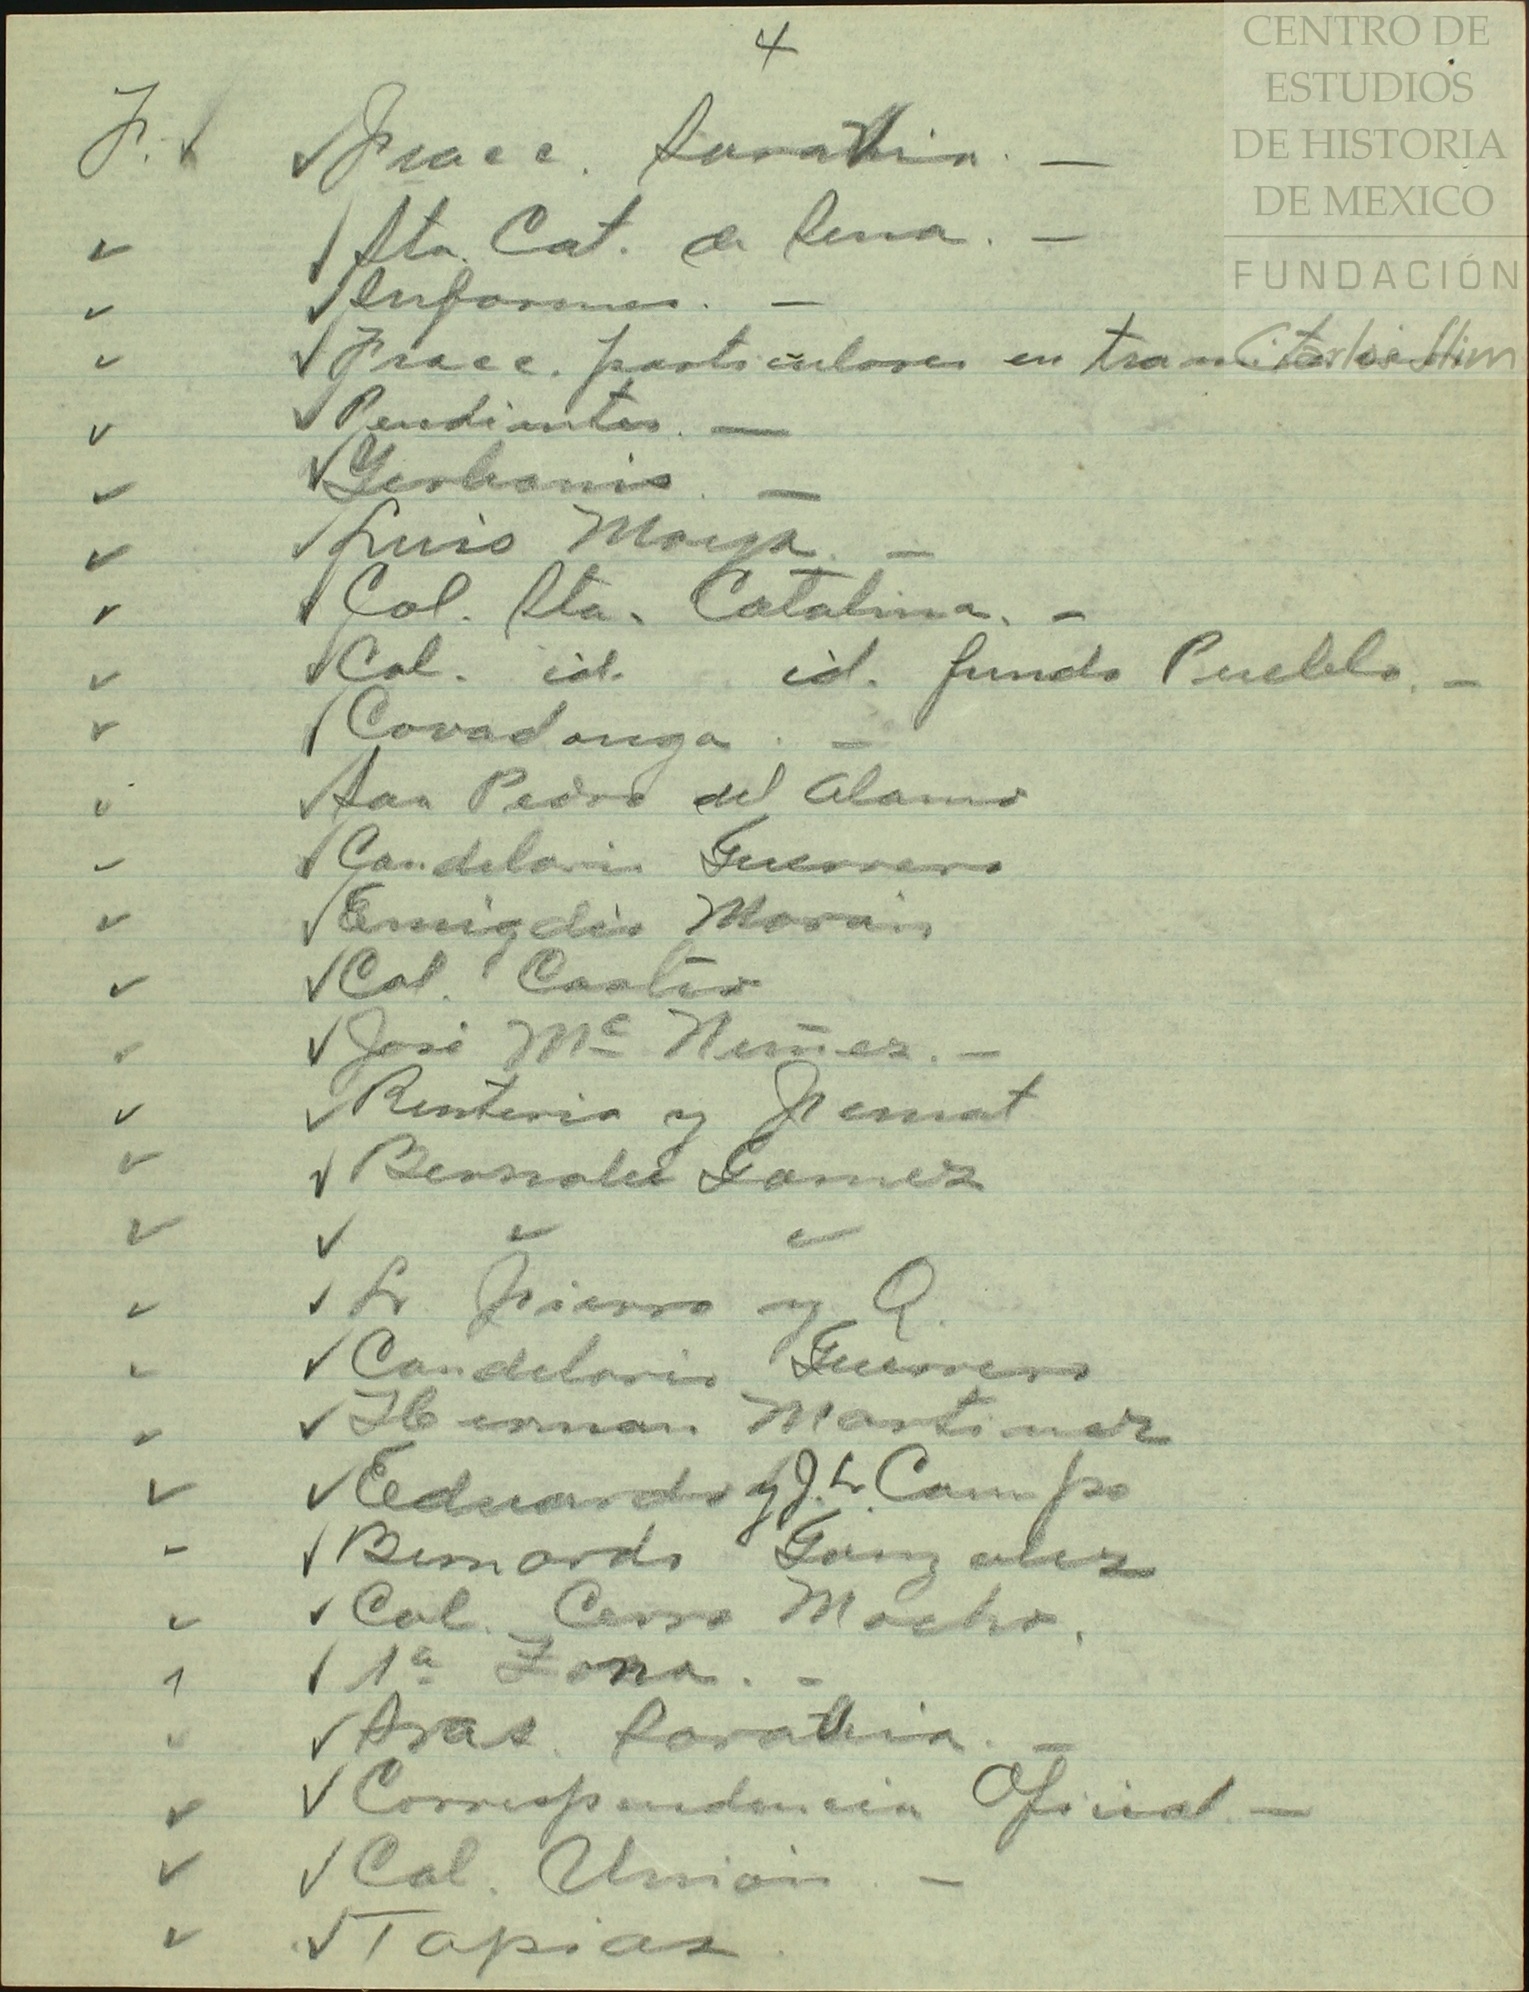 4
CENTRO DE
ESTUDIOS
DE HISTORIA
DE MEXICO
FUNDACIÓN
Carlos Slim
F. ✓ ✓ Fracc. Saravia. —
✓ ✓ Sta. Cat. de Sena. —
✓ ✓ Informes. —
✓ ✓ Fracc. particulares en tramitación
✓ ✓ Pendientes. —
✓ ✓ Yerbanis. —
✓ ✓ Luis Moya. —
✓ ✓ Col. Sta. Catalina. —
✓ ✓ Col. id. id. fundo Pueblo. —
✓ ✓ Covadonga. —
✓ ✓ San Pedro del Alamo
✓ ✓ Candelario Guerrero
✓ ✓ Emigdio Morán
✓ ✓ Col. Castro
✓ ✓ José Ma Nuñez. —
✓ ✓ Renteria y
✓ ✓ Gomez
✓ ✓ ✓ ✓
✓ ✓ L. y Q.
✓ ✓ Candelario Guerrero
✓ ✓ Herman Martinez
✓ ✓ Eduardo y J. L. Campo
- ✓ Bernardo Gonzalez
✓ ✓ Col. Cerro Mocho.
1 ✓ 1a Zona. -
✓ ✓ Sras. Saravia. —
✓ ✓ Correspondencia Oficial —
✓ ✓ Col. Unión. —
✓ ✓ Tapias.